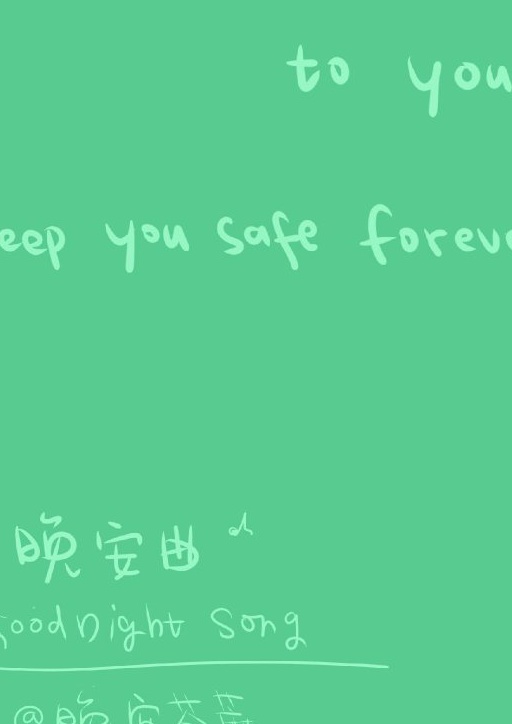 to you
eep you safe foreve
晚安曲
goodnight song
@晚安